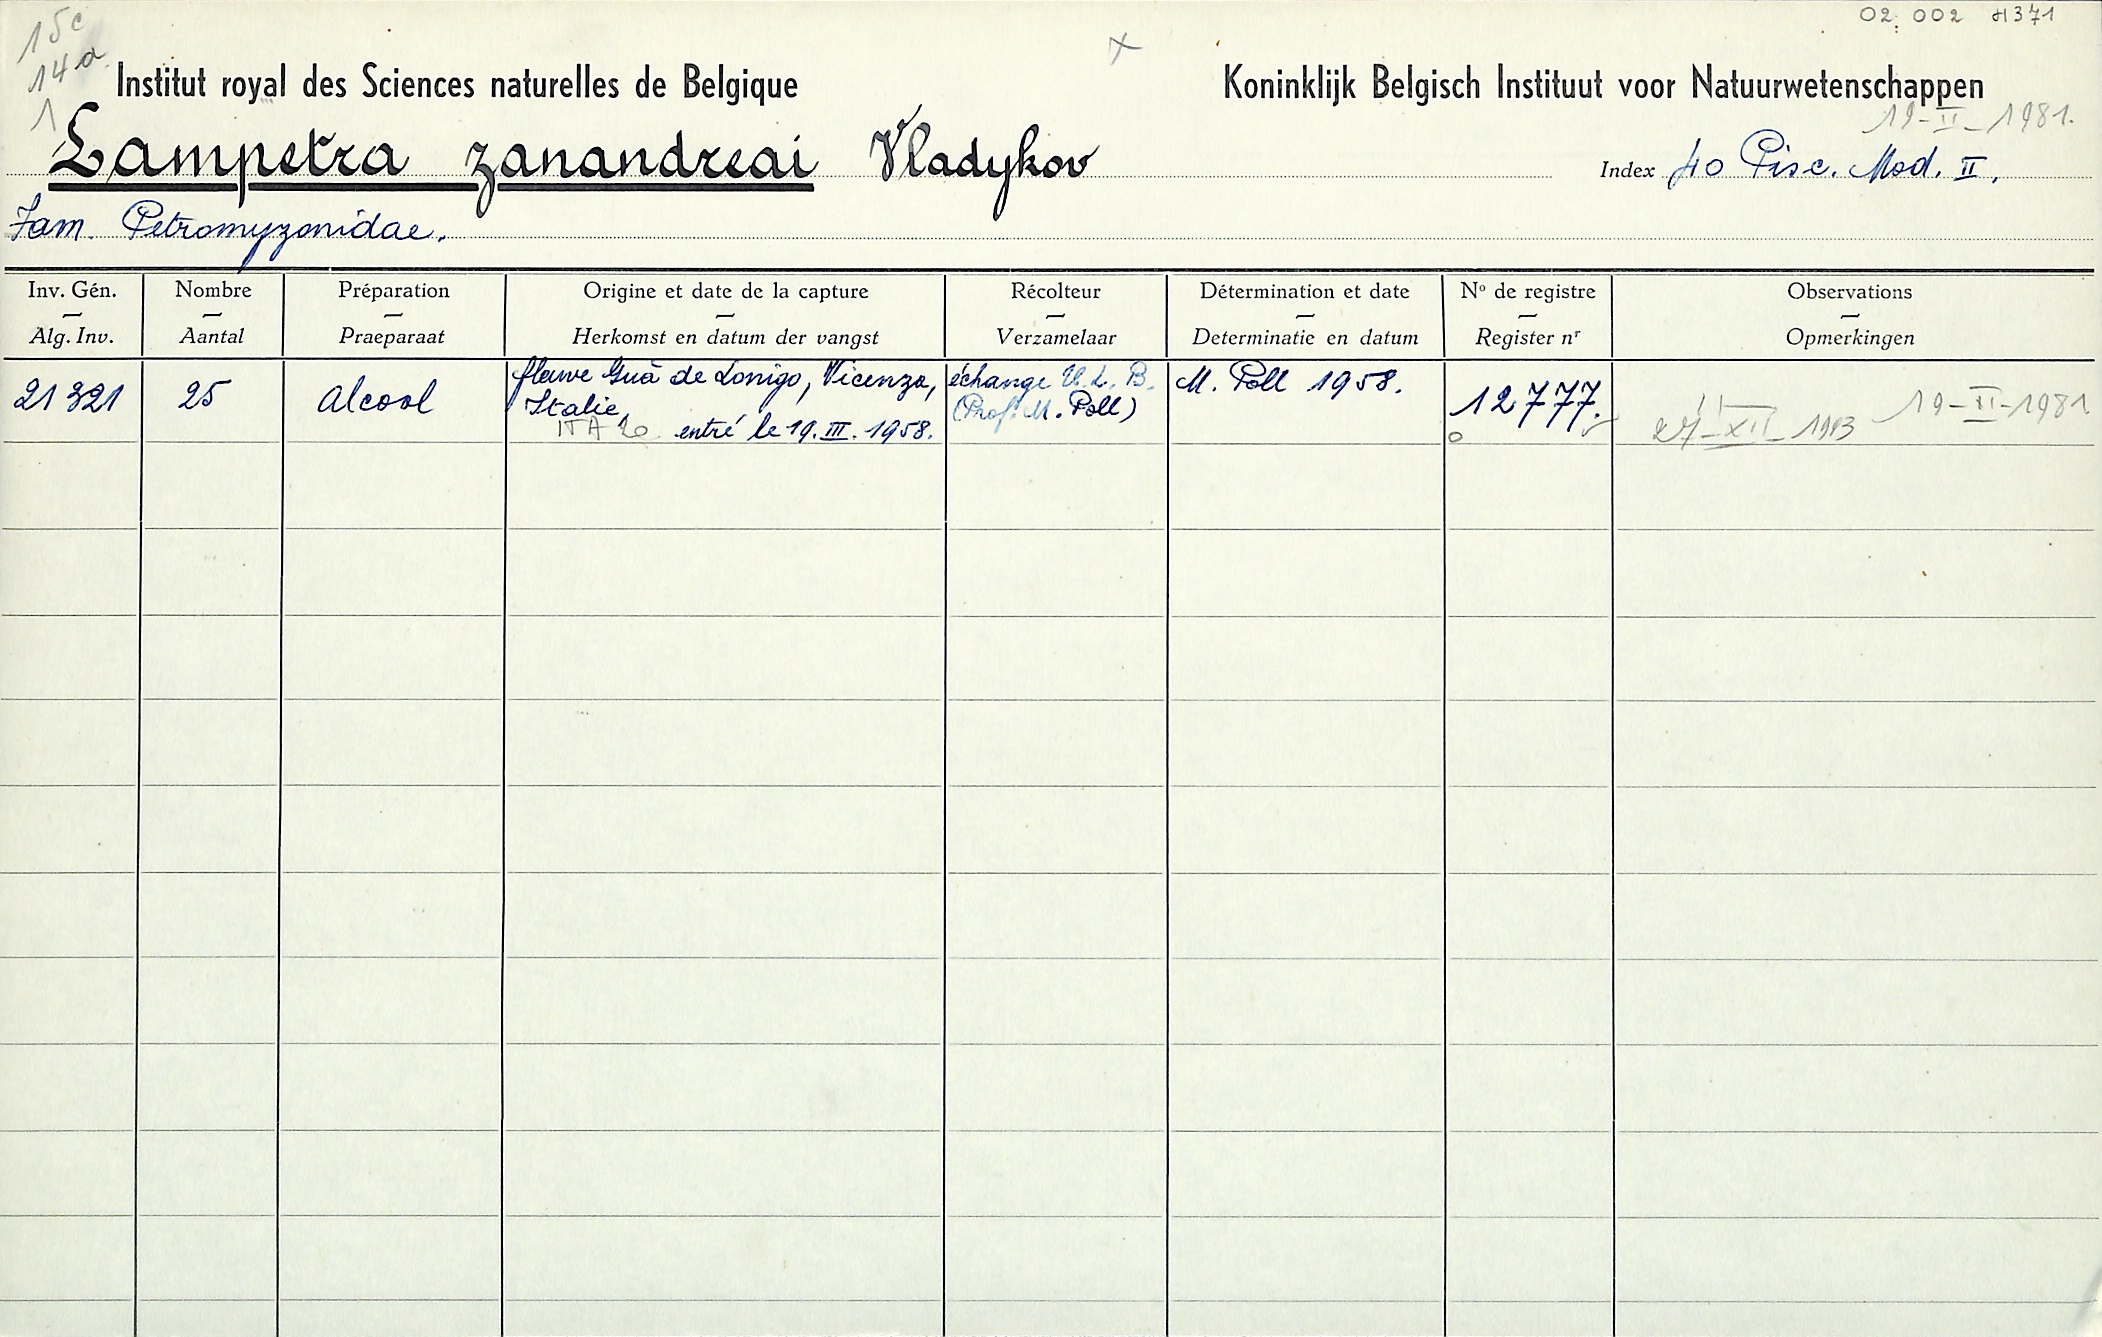 15c
14a
1
02. 002 H371
Institut royal des Sciences naturelles de Belgique
Koninklijk Belgisch Instituut voor Natuurwetenschappen
19-II-1981.
Lampetra zanandreai Vladykov
Index 40 Pisc. Mod. II.
Fam. Petromyzonidae.
Inv. Gén. Nombre Préparation Origine et date de la capture Récolteur Détermination et date Nº de registre Observations
Alg. Inv. Aantal Praeparaat Herkomst en datum der vangst Verzamelaar Determinatie en datum Register nʳ Opmerkingen
21321 25 alcool fleuve Guà de Lonigo, Vicenza, échange U.L.B. M. Poll 1958. 12777. 19-II-1981
Italie, (Prof. M. Poll)
entré le 19.III.1958.